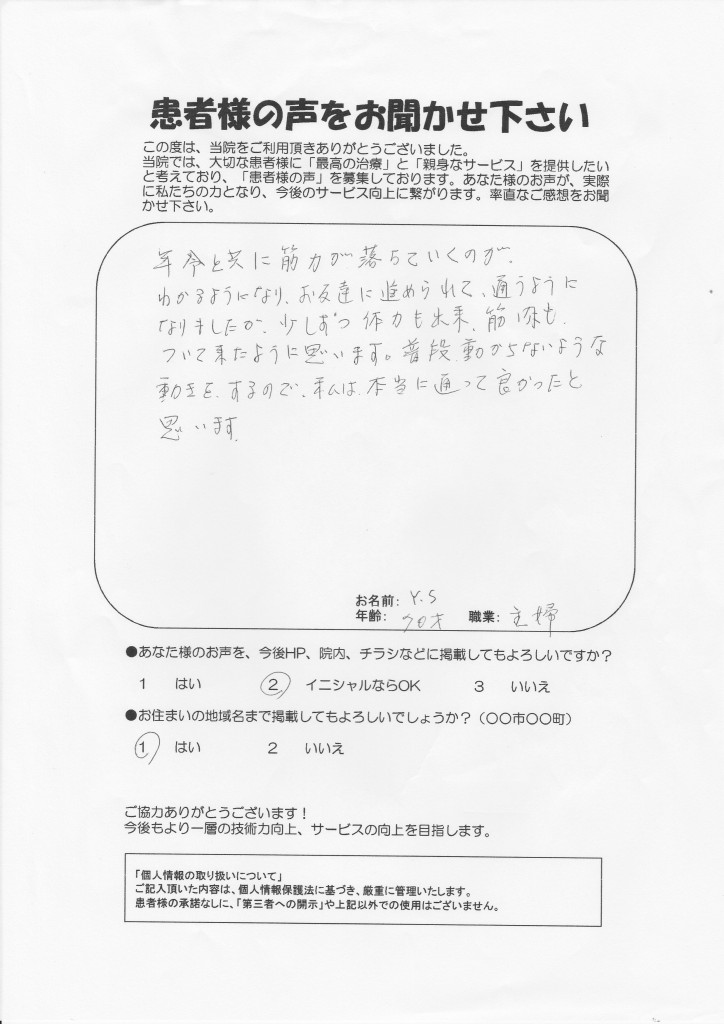 患者様の声をお聞かせ下さい
この度は、当院をご利用頂きありがとうございました。
当院では、大切な患者様に「最高の治療」と「親身なサービス」を提供したい
と考えており、「患者様の声」を募集しております。あなた様のお声が、実際
に私たちの力となり、今後のサービス向上に繋がります。率直なご感想をお聞
かせ下さい。
年令と共に筋力が落ちていくのが、
わかるようになり、お友達に進められて、通うように
なりましたが、少しずつ体力も出来、筋肉も、
ついて来たように思います。普段、動からないような
動きを、するので、私は、本当に通って良かったと
思います。
お名前: Y.S
年齢: 70才 職業: 主婦
●あなた様のお声を、今後HP、院内、チラシなどに掲載してもよろしいですか?
1 はい ② イニシャルならOK 3 いいえ
●お住まいの地域名まで掲載してもよろしいでしょうか?(〇〇市〇〇町)
① はい 2 いいえ
ご協力ありがとうございます!
今後もより一層の技術力向上、サービスの向上を目指します。
「個人情報の取り扱いについて」
ご記入頂いた内容は、個人情報保護法に基づき、厳重に管理いたします。
患者様の承諾なしに、「第三者への開示」や上記以外での使用はございません。